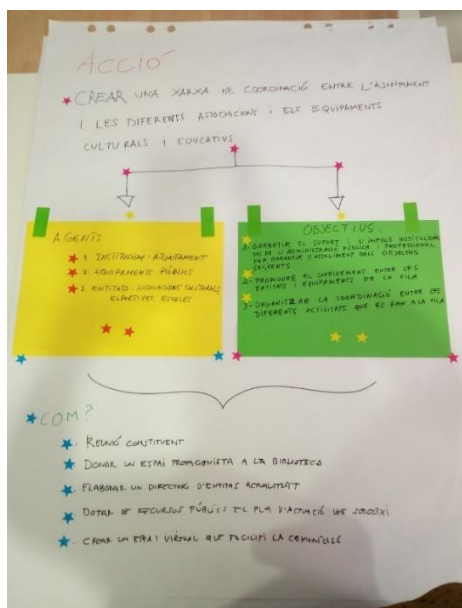 ACCIÓ
CREAR UNA XARXA DE COORDINACIÓ ENTRE L'AJUNTAMENT
I LES DIFERENTS ASSOCIACIONS I ELS EQUIPAMENTS
CULTURALS I EDUCATIUS
AGENTS
1 INSTITUCIONS: AJUNTAMENT
2. EQUIPAMENTS PÚBLICS
3 ENTITATS: ASSOCIACIONS CULTURALS
ESPORTIVES, ESCOLES
OBJECTIUS:
1- GARANTIR EL SUPORT I L'IMPULS INSTITUCIONAL
DES DE L'ADMINISTRACIÓ PÚBLICA I PROFESSIONAL
PER GARANTIR L'ASSOLIMENT DELS OBJECTIUS
SEGÜENTS
2- PROMOURE EL CONEIXEMENT ENTRE LES
ENTITATS I EQUIPAMENTS DE LA VILA
3- ORGANITZAR LA COORDINACIÓ ENTRE LES
DIFERENTS ACTIVITATS QUE ES FAN A LA VILA
COM?
REUNIÓ CONSTITUENT
DONAR UN ESPAI PROTAGONISTA A LA BIBLIOTECA
ELABORAR UN DIRECTORI D'ENTITATS ACTUALITZAT
DOTAR DE RECURSOS PÚBLICS EL PLA D'ACTUACIÓ QUE
CREAR UN ESPAI VIRTUAL QUE FACILITI LA